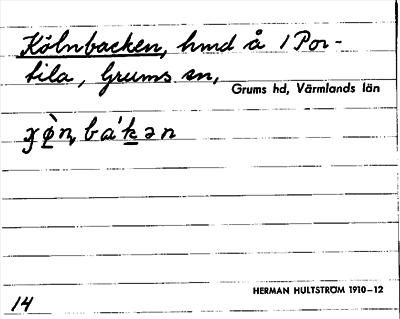 Kölnbacken, hmd å 1 Por-
tila, Grums sn,
Grums hd, Värmlands län
HERMAN HULTSTRÖM 1910–12
14